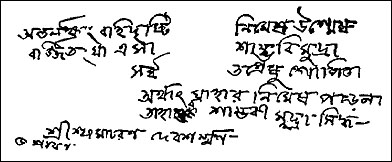 অন্তর্লক্ষ্য বহির্দৃষ্টি নিমেষ উন্মেষ
বর্জিতা যা এ সা শাম্ভবি মুদ্রা
সর্ব্ব তন্ত্রেষু গোপিতা
অর্থাৎ যাহার নিমেষ পড়েনা
তাহার শাম্ভবী মুদ্রা সিদ্ধ
শ্রীশ্যামাচরণ দেবশর্ম্মণ